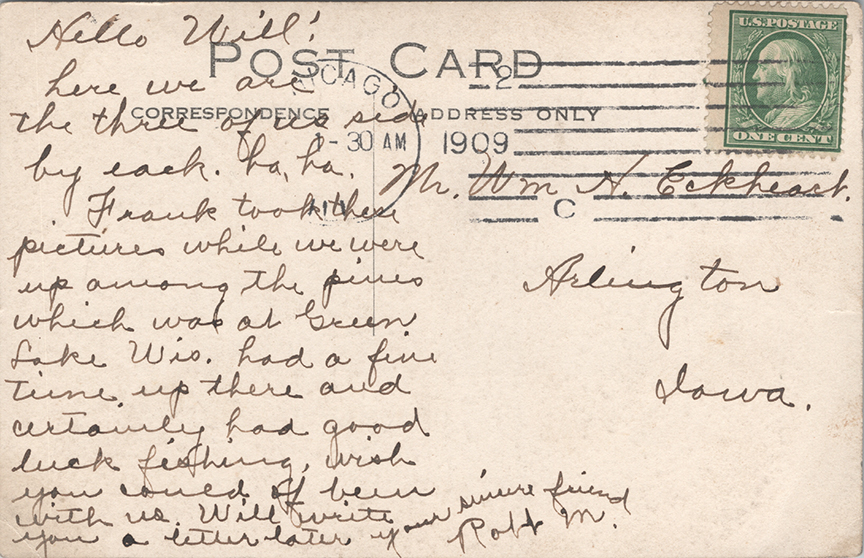 Hello Will!
POST CARD
U.S. POSTAGE
ONE CENT
here we are
CORRESPONDENCE
ADDRESS ONLY
the three of us side
by each. ha, ha.
CHICAGO
2
-30 AM
1909
ILL
C
Frank took these
pictures while we were
up among the pines
which was at Green
Lake Wis. had a fine
time up there and
certainly had good
luck fishing, wish
you could of been
with us. Will write
you a letter later your sincere friend
Robt M.
Mr. Wm H. Eckheart.
Arlington
Iowa.